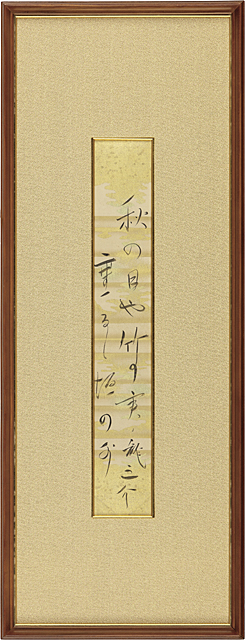 秋の日や竹の実 龍之介
垂るゝ垣の外